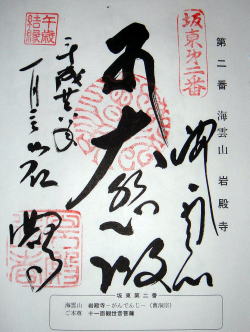 坂東㐧二番
第二番 海雲山 岩殿寺
大悲殿
午歳
結縁
平成廿六年
一月三日
坂東第二番
海雲山 岩殿寺-がんでんじ-(曹洞宗)
ご本尊 十一面観世音菩薩